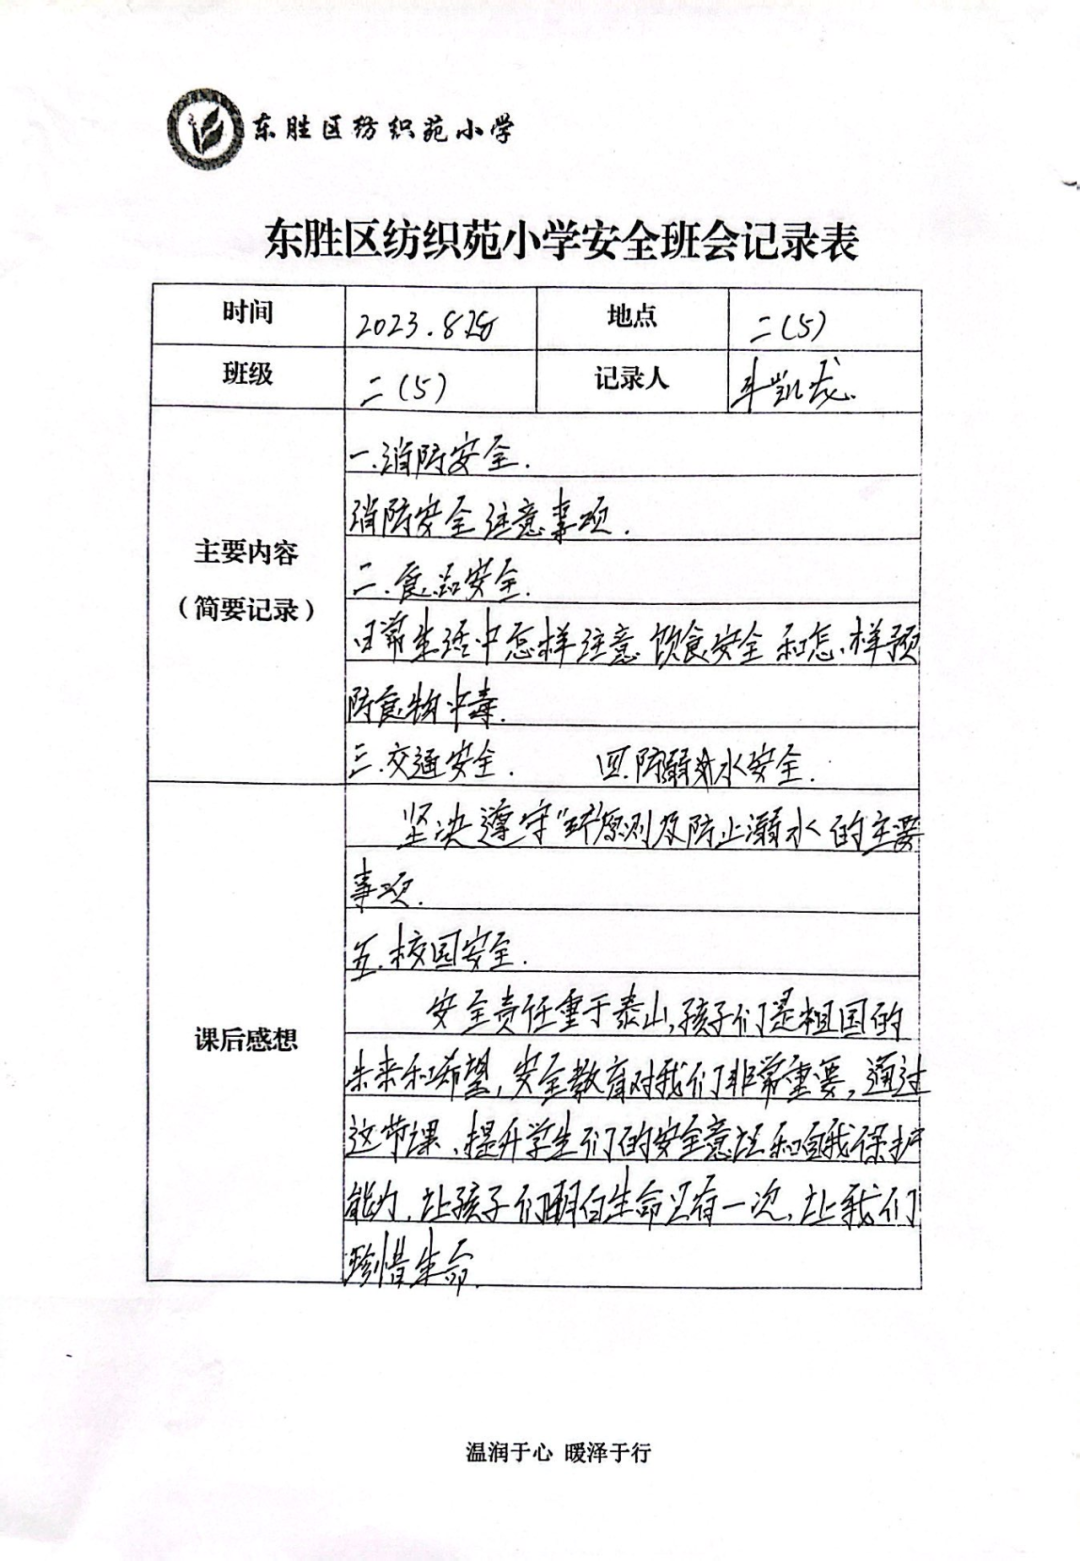 东胜区纺织苑小学
东胜区纺织苑小学安全班会记录表
时间 2023.8.28 地点 二(5)
班级 二(5) 记录人
一.消防安全.
消防安全注意事项.
二.食品安全.
主要内容
(简要记录)
日常生活中怎样注意饮食安全和怎样预
防食物中毒.
三.交通安全. 四.防溺水安全.
坚决遵守"原则及防止溺水的主要
事项.
五.校园安全.
课后感想
安全责任重于泰山,孩子们是祖国的
未来和希望,安全教育对我们非常重要,通过
这节课、提升学生们的安全意识和自我保护
能力,让孩子们明白生命只有一次,让我们
珍惜生命.
温润于心 暖泽于行